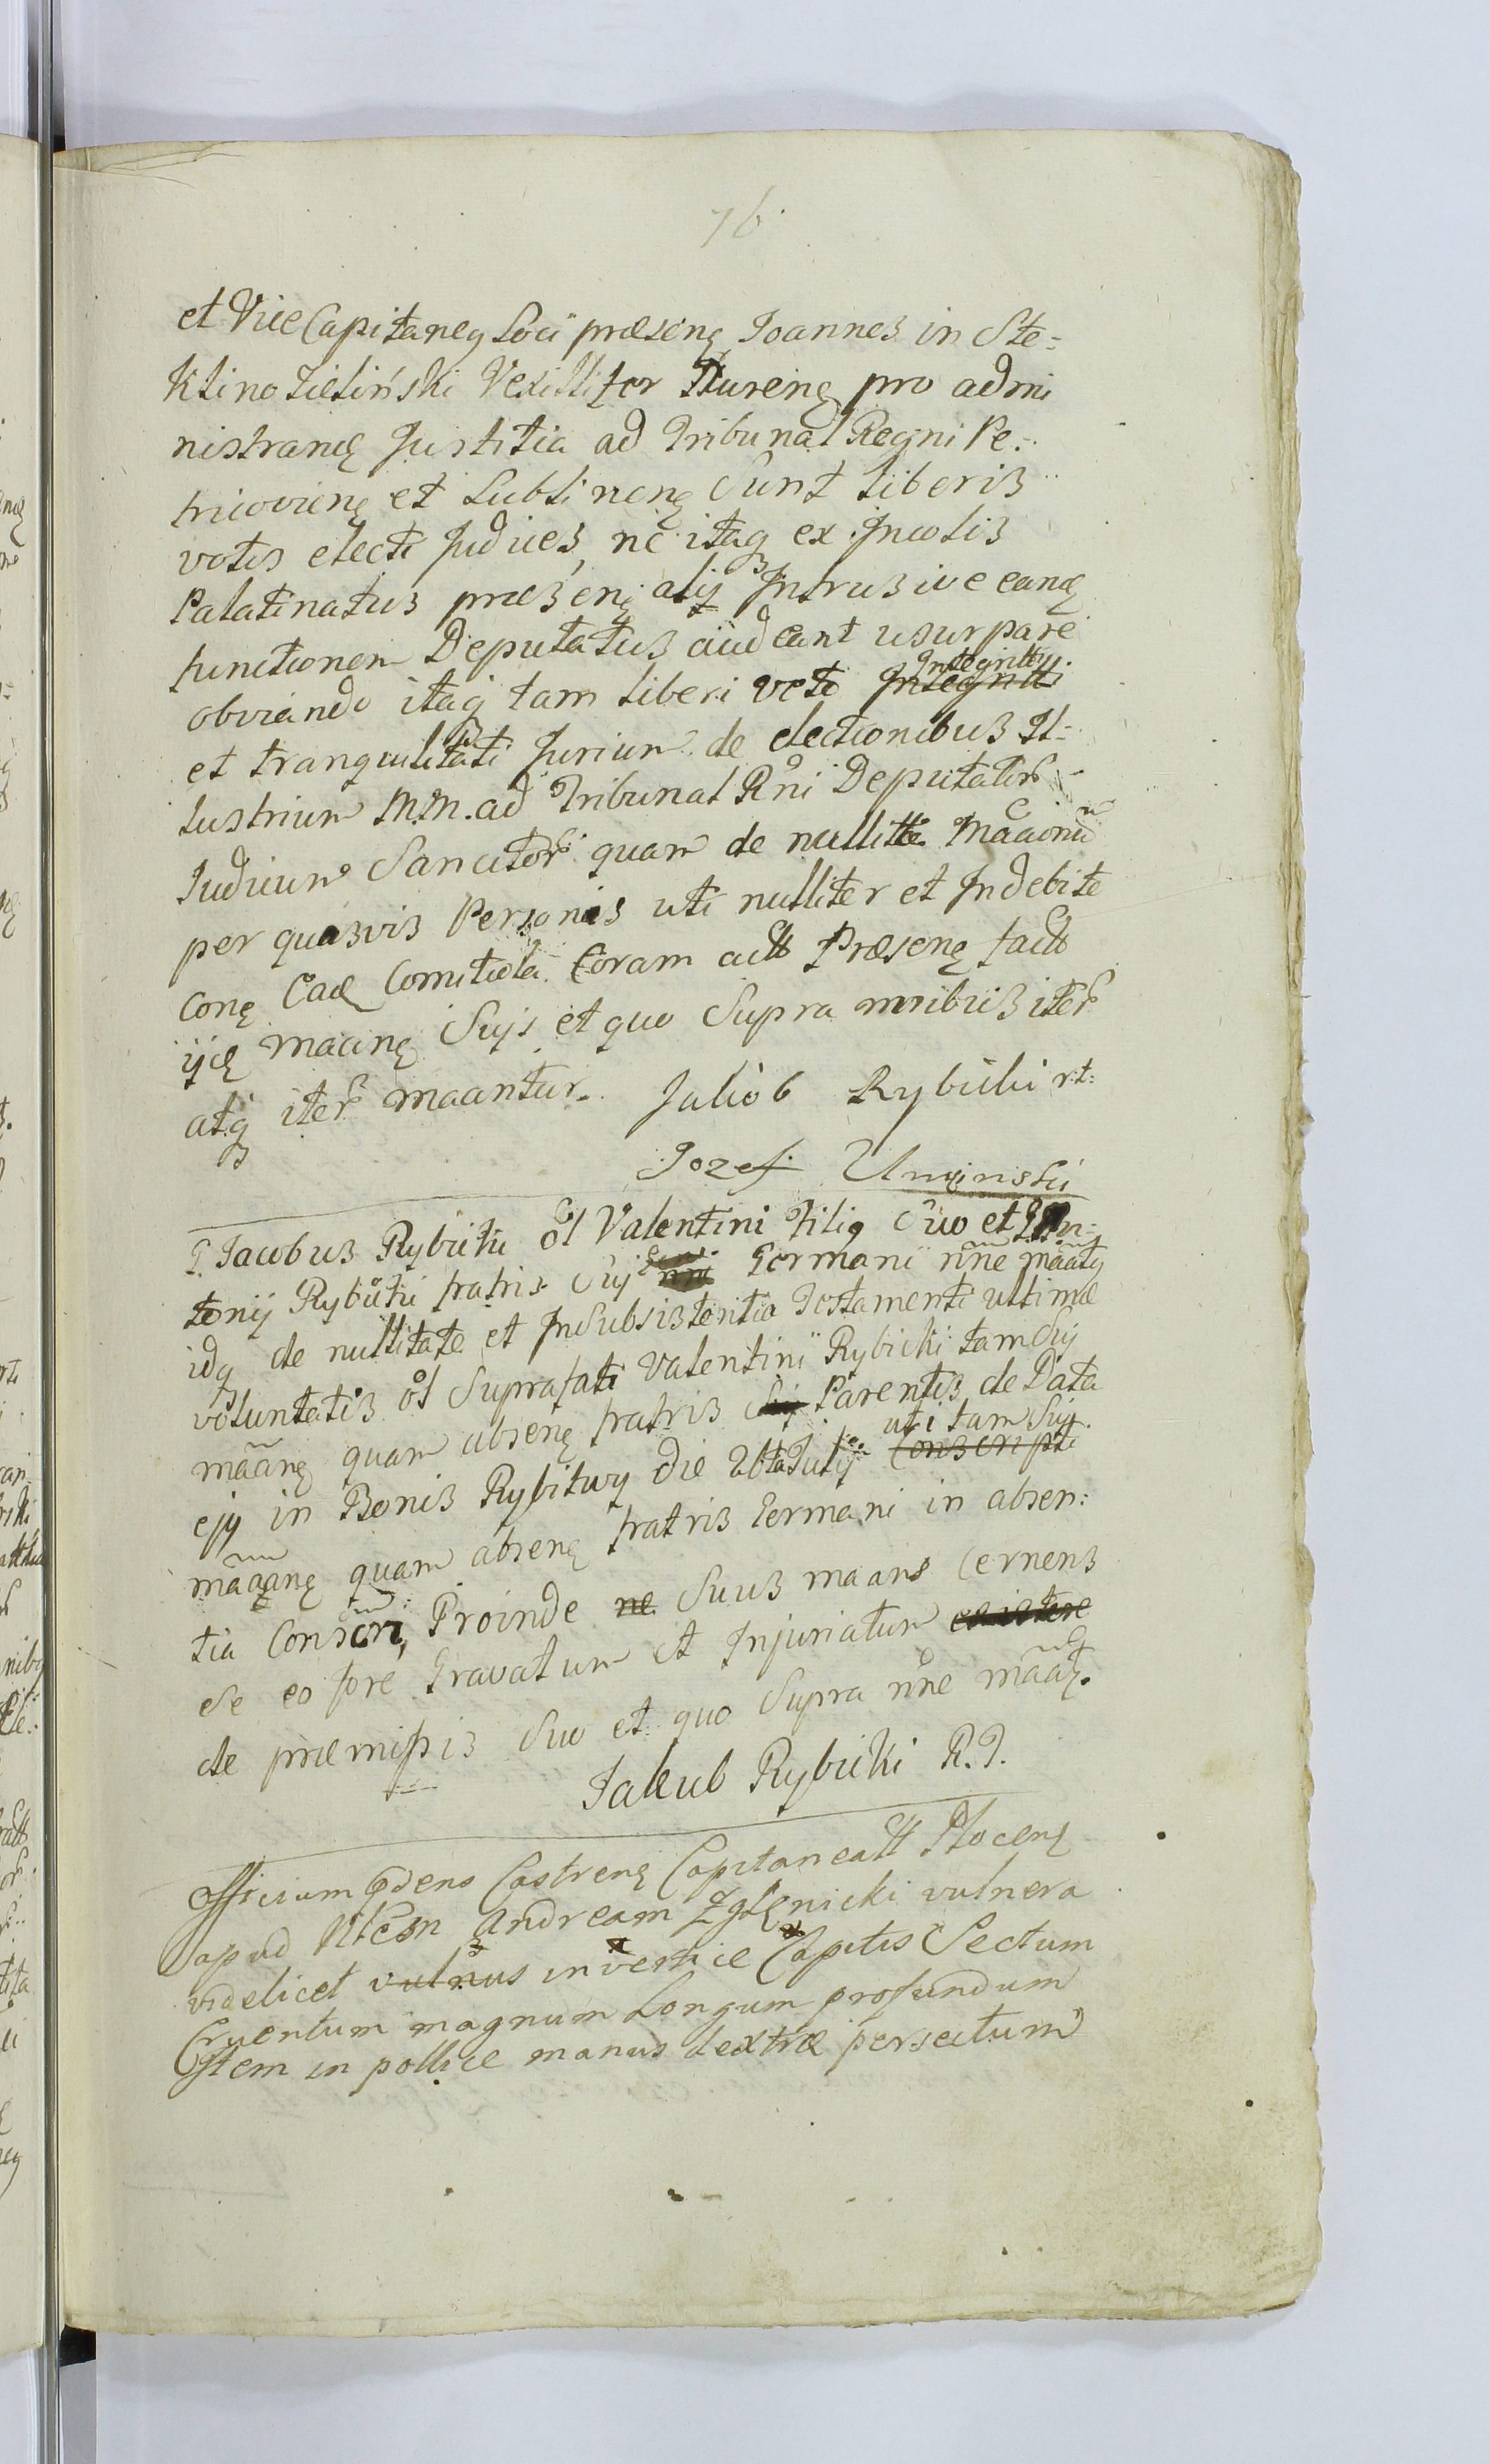 76
et Vice Capitaneq Loci præsenę Joannes in Ste=
klino Zieliński Vexillifer Rurenę pro admi
nistrandę Justitia ad Tribunal Regni Pe=
tricovienę et Lublinenę Sunt liberis
votis electi Judices, ne itaq ex Incolis
Palatinatus præsenę alij Intrusive eandę
functionem Deputatus audeant usurpare
obviando itaq tam liberi veto Integritti.
et tranquilitati Jurium de electionibus Il=
lustrium M.M. ad Tribunal Rni Deputator
Judicum Sancitor quam de nullitte Maaonu
per quasvis Personas uti nulliter et Indebite
conę Ead Comitiola Coram actt Præsenę factt
ijdę maanę Suis et quo Supra mnibus iter
atq iter maantur. Jakob Rybicki rt:
Jozef Uminski
G. Jacobus Rybicki ol Valentini Filiq Suo et An=
tonij Rybicki fratris Sui Germani nne maatq
idq de nullitate et Insubsistentia Testamenti ultimæ
voluntatis ol Suprafati Valentini Rybicki tam Sui
maanę quam absenę fratris Sui Parentis de Data
ejq in Bonis Rybitwy die 26ta Julij Conscripti uti tam Sui
maanę quam absenę fratris Germani in absen:
tia Conscri, Proinde ne Suus maans Cernens
Se eo fore Gravatum et Injuriatum existere
de præmissis Suo et quo Supra nne maat.
Jakub Rybicki R.P.
Officium Gdens Castrenę Capitaneatt Plocenę
apud Nlem Andream Zglenicki vulnera
videlicet vulnus in vertice Capitis Sectum
Cruentum magnum Longum profundum
Item in pollice manus dextræ persectum